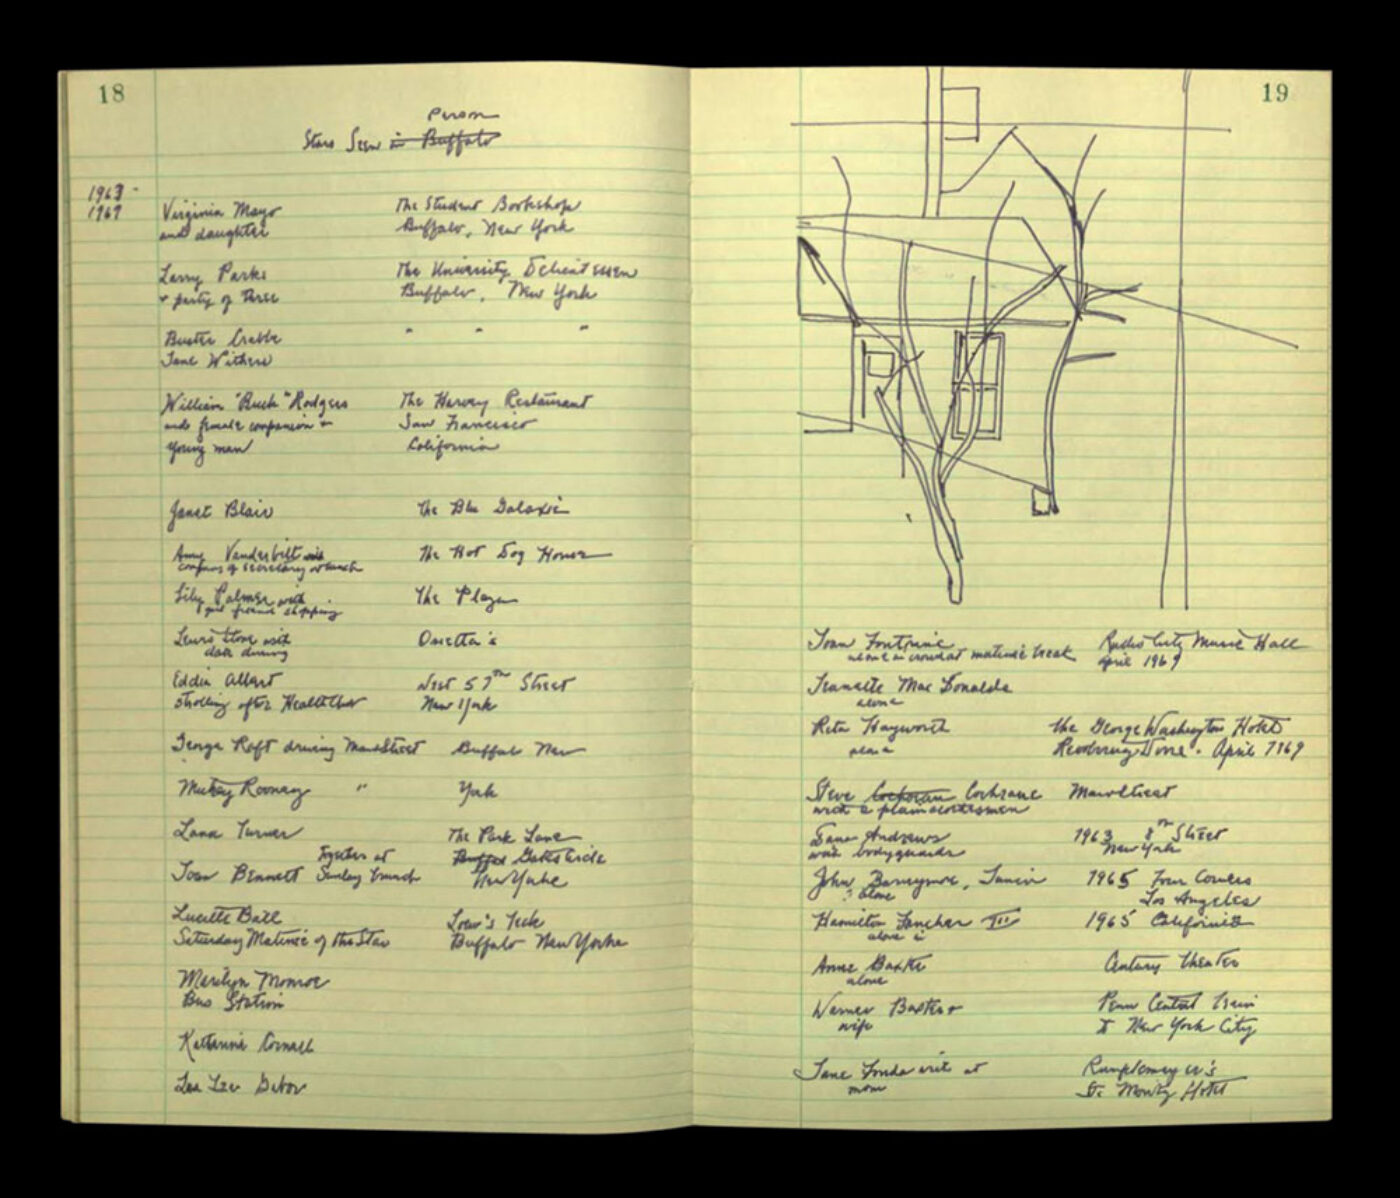 18
Person
Stars Seen in Buffalo
1963 -
1969
Virginia Mayo The Student Bookshop
and daughter Buffalo, New York
Larry Parks The University Delicatessen
+ party of three Buffalo, New York
Buster Crabbe " " "
Jane Withers
William "Buck" Rodgers The Harvey Restaurant
and female companion + San Francisco
young man California
Janet Blair The Blu Galaxie
Amy Vanderbilt The Hot Dog House
secretary
Lily Palmer with The Plaza
friend shopping
Lewis Stone with Onetta's
date dining
Eddie Albert West 57th Street
strolling after New York
George Raft driving Main Street Buffalo New
Mickey Rooney " York
Lana Turner The Park Lane
Together at Gates Circle
Joan Bennett Sunday brunch New York
Lucille Ball Loew's Teck
Saturday Matinee of the Star Buffalo New York
Marilyn Monroe
Bus Station
Katharine Cornell
Zsa Zsa Gabor
19
Joan Fontaine Radio City Music Hall
alone in crowd at matinee break April 1969
Jeanette Mac Donalds
alone
Rita Hayworth The George Washington Hotel
alone Revolving Door. April 1969
Steve Cochran Cochrane Main Street
with a plainclothesmen
Dana Andrews 1963 8th Street
with bodyguards New York
John Barrymore, Junior 1965 Four Corners
alone Los Angeles
Hamilton Fancher III 1965 California
alone
Anne Baxter Century Theater
alone
Warner Baxter + Penn Central train
wife to New York City
Jane Fonda Rumplemayer's
St. Moritz Hotel